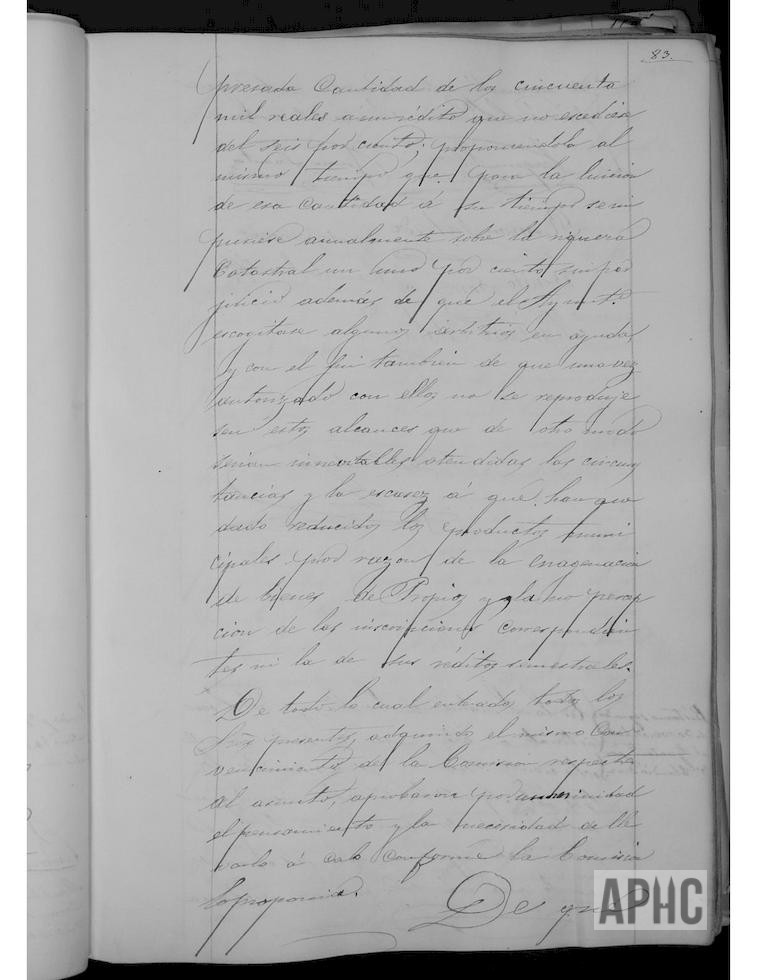 83.
presada Cantidad de los cincuenta
mil reales á un rédito que no escediese
del seis por ciento; proponiendola al
mismo tiempo que para la luicion
de esa Cantidad á su tiempo se im
pusiese anualmente sobre la riqueza
Catastral un uno por ciento sin per
juicio además de que el Ayunt.º
escogitase algunos arbitrios en ayuda,
y con el fin tambien de que una vez
autorizado con ellos no se reproduje
sen estos alcances que de otro modo
serian innevitables atendidas las circuns
tancias y la escasez á que han que
dado reducidos los productos muni
cipales por razon de la enagenacion
de bienes de Propios y la no percep
cion de las inscripciones correspondien
tes ni la de sus réditos semestrales.
De todo lo cual enterados todos los
Sres presentes, adquirido el mismo Con
vencimiento de la Comision respecto
al asunto, aprobaron por unanimidad
el pensamiento y la necesidad de lle
varlo á cabo conforme la Comision
lo proponia.
De que
APHC